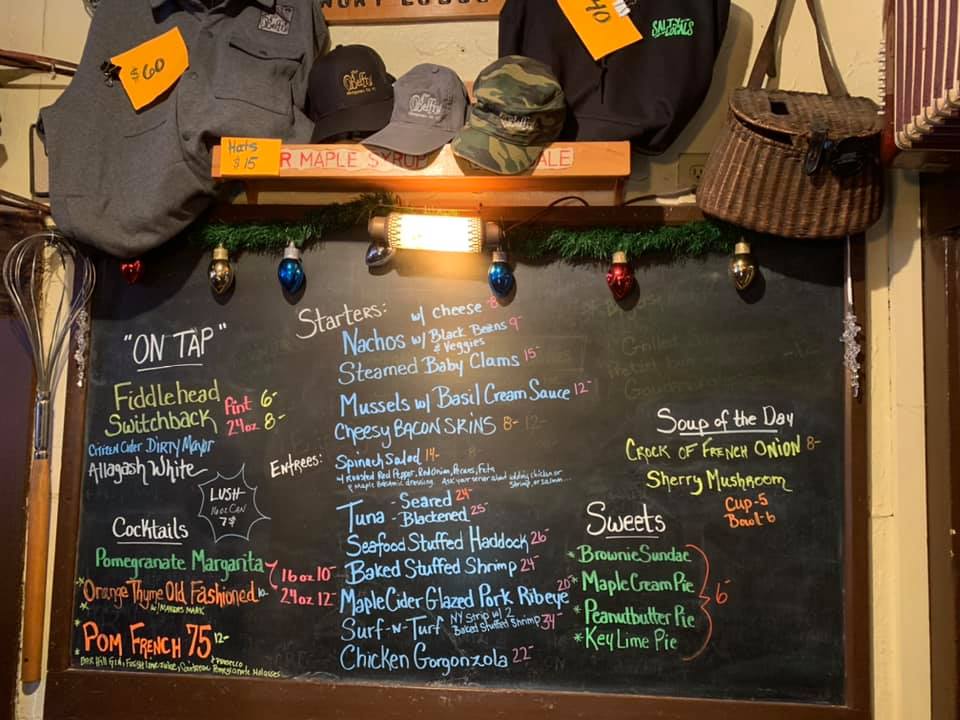 $60
SALTY LOCALS
40
Hats
$15
R MAPLE SYRUP
ALE
"ON TAP"
Fiddlehead
Switchback
Pint 6-
24oz 8-
Citizen Cider Dirty Mayor
Allagash White
LUSH
16oz CAN
7$
Cocktails
Pomegranate Margarita
16oz 10-
24oz 12-
*Orange Thyme Old Fashioned
w/ MAKERS MARK
*POM FRENCH 75 12-
Bar Hill Gin, Fresh Lime Juice, Prosecco
Pomegranate Molasses
Starters:
Nachos w/ cheese 8-
w/ Black Beans 9-
& Veggies
Steamed Baby Clams 15-
Mussels w/ Basil Cream Sauce 12-
Cheesy BACON SKINS 8- 12-
Entrees:
Spinach Salad 14-
w/ Roasted Red Pepper, Red Onion, Pecans, Feta
& maple Balsamic dressing. Ask your server about adding chicken or
Shrimp, or salmon...
Tuna - Seared 24-
- Blackened 25-
Seafood Stuffed Haddock 26-
Baked Stuffed Shrimp 24-
Maple Cider Glazed Pork Ribeye 20-
Surf-N-Turf NY Strip w/ 2
Baked Stuffed Shrimp 34-
Chicken Gorgonzola 22-
Soup of the Day
CROCK OF FRENCH ONION 8-
Sherry Mushroom
Cup-5
Bowl-6
Sweets
*Brownie Sundae
*Maple Cream Pie
*Peanutbutter Pie
*Key Lime Pie
6-